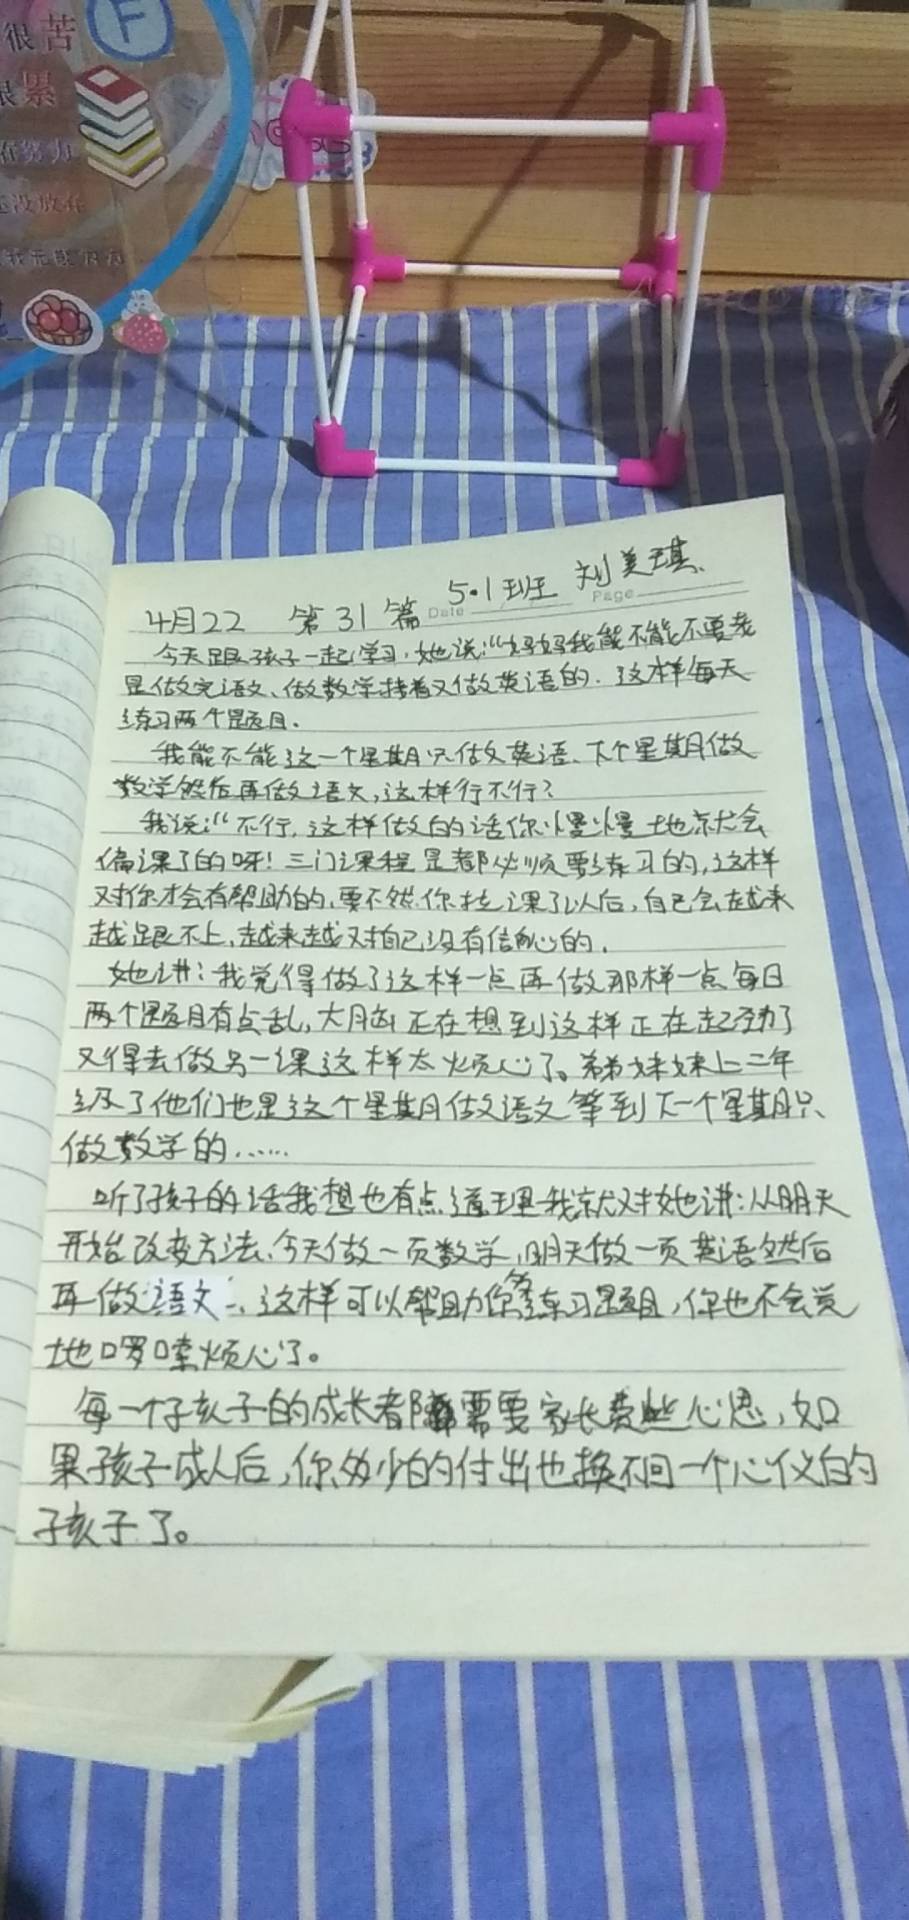 很苦
很累
在努力
还没放弃
F
5·1班 刘美琪
Date
Page
4月22 第31篇
今天跟孩子一起学习,她说:“妈妈我能不能不要老
是做完语文、做数学接着又做英语的.这样每天
练习两个题目.
我能不能这一个星期只做英语、下个星期做
数学然后再做语文,这样行不行?
我说:“不行,这样做的话你慢慢地就会
偏课了的呀!三门课程是都必须要练习的,这样
对你才会有帮助的,要不然你拉课了以后,自己会越来
越跟不上,越来越对自己没有信心的.
她讲:我觉得做了这样一点再做那样一点每日
两个题目有点乱,大脑正在想到这样正在起劲了
又得去做另一课这样太烦心了。弟弟妹妹上二年
级了他们也是这个星期做语文等到下一个星期只
做数学的……
听了孩子的话我想也有点道理我就对她讲:从明天
开始改变方法、今天做一页数学,明天做一页英语然后
再做语文、这样可以帮助你练习题目,你也不会觉
地啰嗦烦心了。
每一个孩子的成长都需要家长费些心思,如
果孩子成人后,你多少的付出也换不回一个心仪的
孩子了。